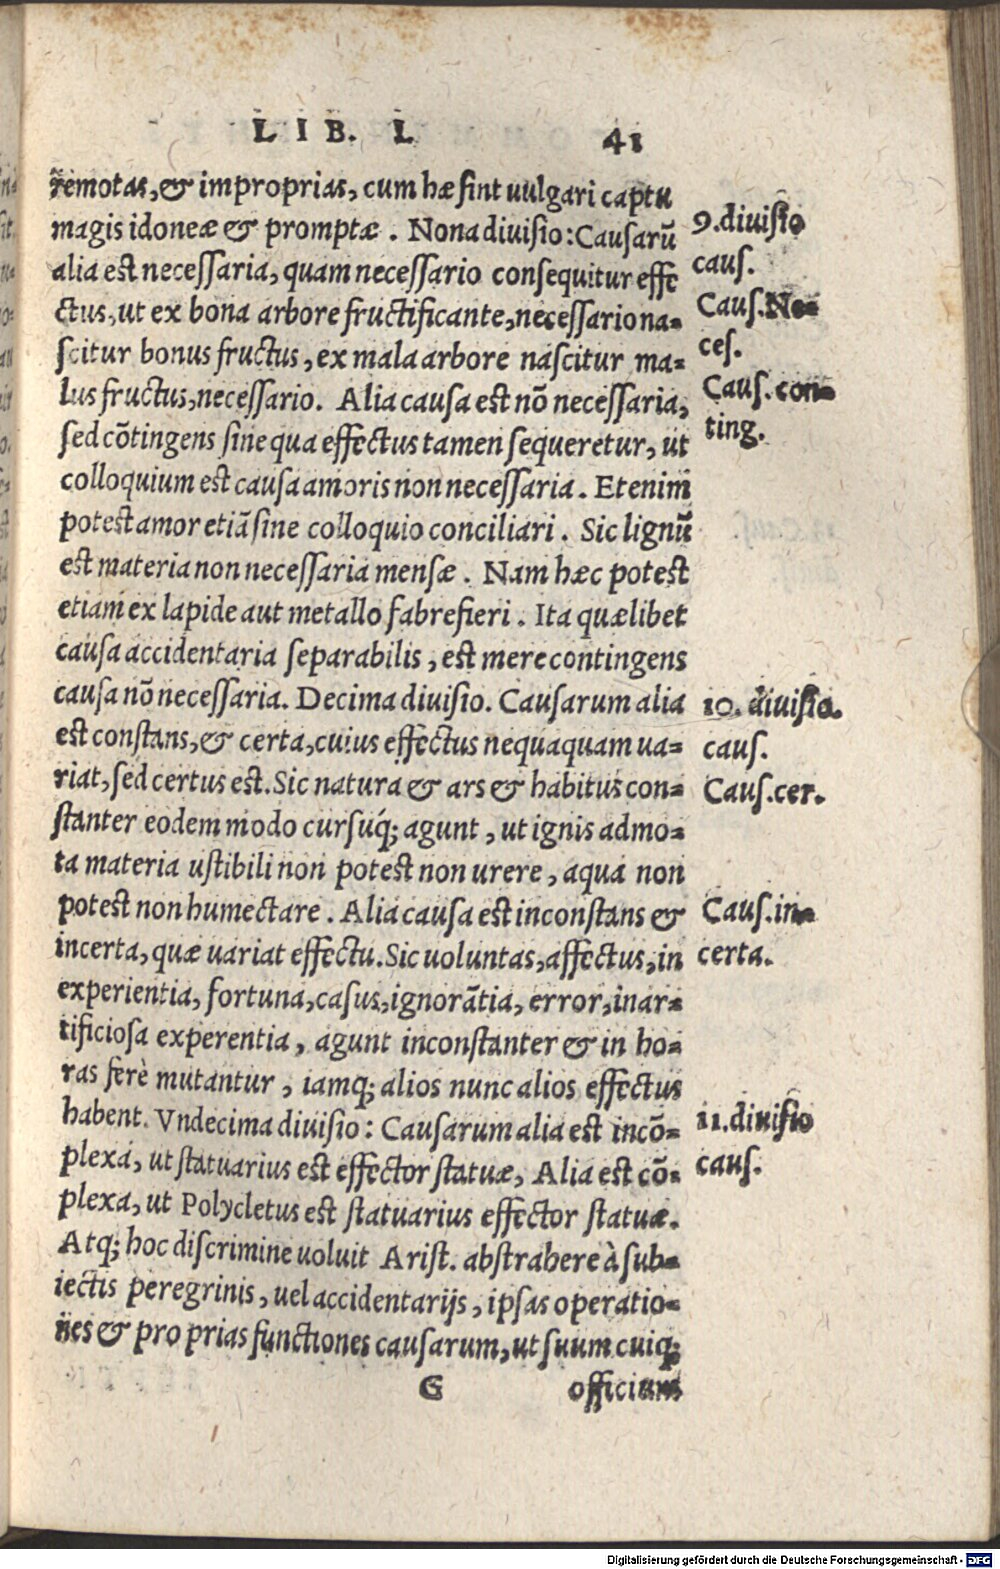 LIB. I. 41
remotas, & improprias, cum hæ sint uulgari captu
magis idoneæ & promptæ. Nona diuisio: Causarũ
alia est necessaria, quam necessario consequitur effe
ctus, ut ex bona arbore fructificante, necessario na-
scitur bonus fructus, ex mala arbore nascitur ma-
lus fructus, necessario. Alia causa est nõ necessaria,
sed cõtingens sine qua effectus tamen sequeretur, ut
colloquium est causa amoris non necessaria. Etenim
potest amor etiã sine colloquio conciliari. Sic lignũ
est materia non necessaria mensæ. Nam hæc potest
etiam ex lapide aut metallo fabrefieri. Ita quælibet
causa accidentaria separabilis, est mere contingens
causa nõ necessaria. Decima diuisio. Causarum alia
est constans, & certa, cuius effectus nequaquam ua-
riat, sed certus est. Sic natura & ars & habitus con-
stanter eodem modo cursuq́; agunt, ut ignis admo-
ta materia ustibili non potest non urere, aqua non
potest non humectare. Alia causa est inconstans &
incerta, quæ uariat effectu. Sic uoluntas, affectus, in
experientia, fortuna, casus, ignorãtia, error, inar-
tificiosa experentia, agunt inconstanter & in ho-
ras ferè mutantur, iamq; alios nunc alios effectus
habent. Vndecima diuisio: Causarum alia est incõ-
plexa, ut statuarius est effector statuæ, Alia est cõ-
plexa, ut Polycletus est statuarius effector statuæ.
Atq; hoc discrimine uoluit Arist. abstrahere à sub-
iectis peregrinis, uel accidentarijs, ipsas operatio-
nes & proprias functiones causarum, ut suum cuiq;
G officium
9. diuisio
caus.
Caus. Ne-
ces.
Caus. con-
ting.
10. diuisio.
caus.
Caus. cer.
Caus. in-
certa.
11. diuisio
caus.
Digitalisierung gefördert durch die Deutsche Forschungsgemeinschaft - DFG